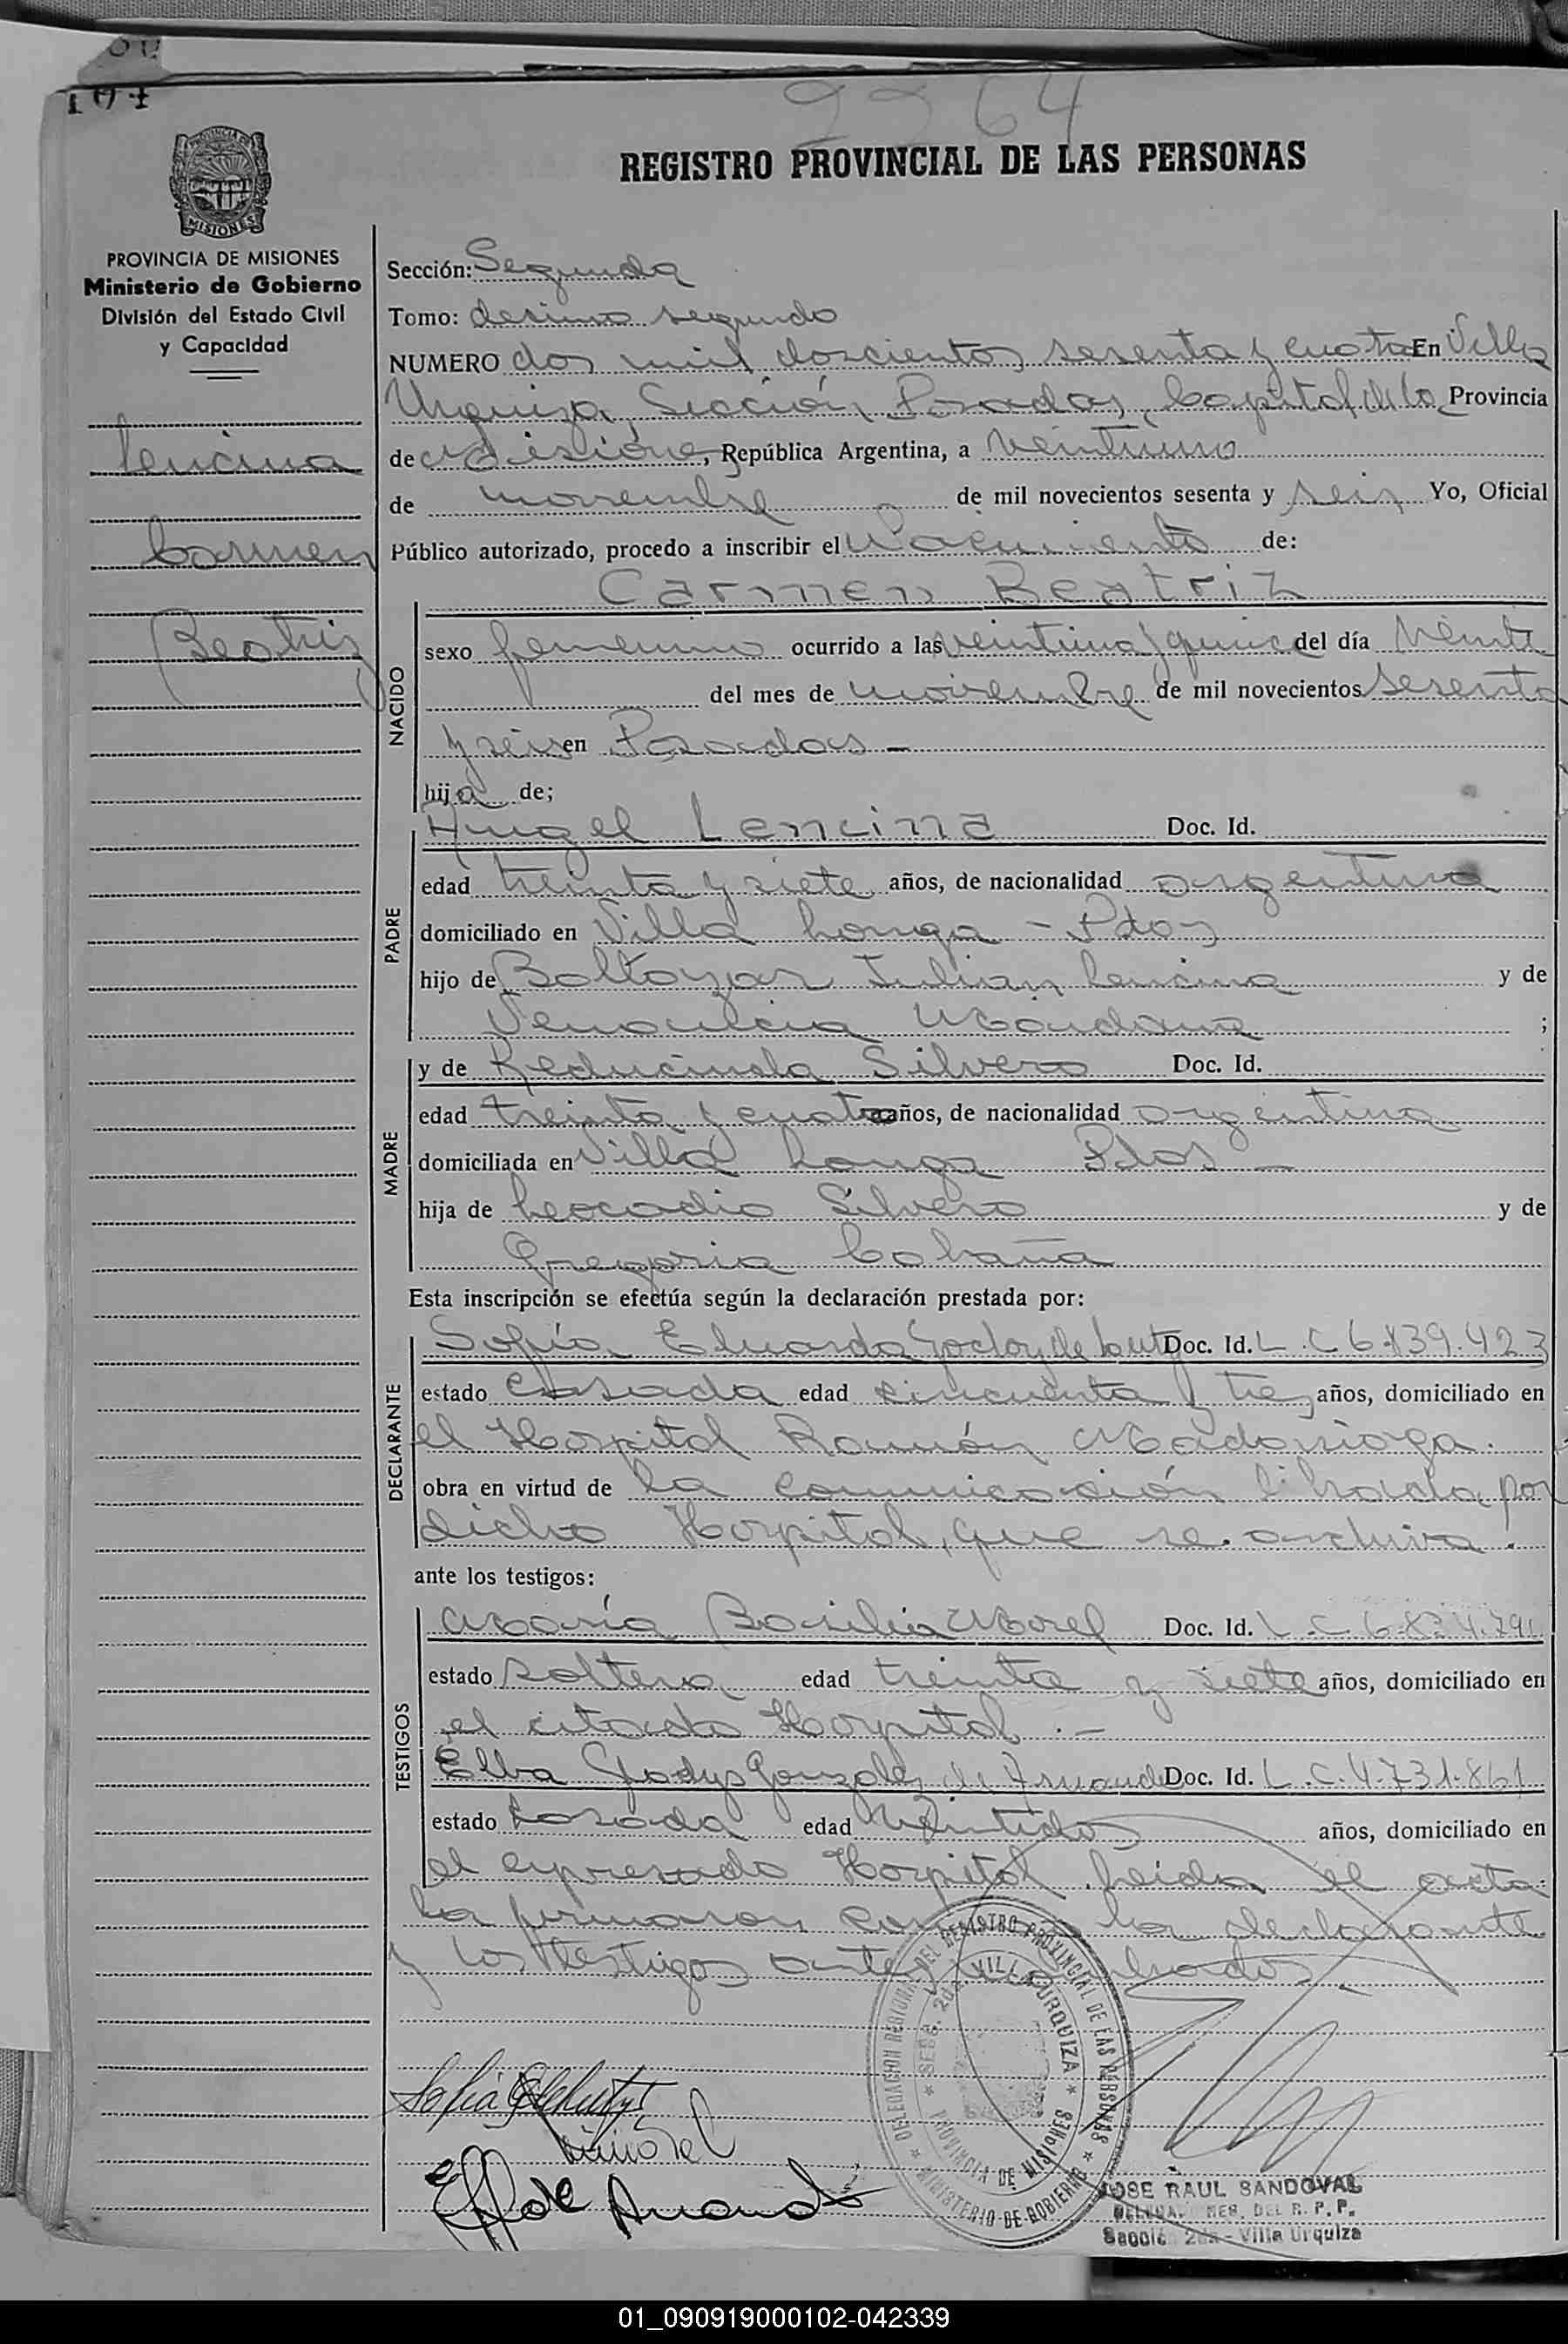 2264
REGISTRO PROVINCIAL DE LAS PERSONAS
PROVINCIA DE MISIONES
MISIONES
PROVINCIA DE MISIONES
Ministerio de Gobierno
División del Estado Civil
y Capacidad
Lencina
Carmen
Beatriz
Sección: Segunda
Tomo: desimo segundo
NUMERO dos mil doscientos sesenta y cuatro En Villa
Urquiza, Sección Posadas, Capital de la Provincia
de Misiones, República Argentina, a veintiuno
de noviembre de mil novecientos sesenta y seis Yo, Oficial
Público autorizado, procedo a inscribir el Nacimiento de:
Carmen Beatriz
NACIDO
sexo femenino ocurrido a las veintiuna y quince del día Veinte
del mes de noviembre de mil novecientos sesenta
y seis en Posadas -
hija de;
PADRE
Angel Lencina Doc. Id.
edad treinta y siete años, de nacionalidad argentina
domiciliado en Villa Longa - Pdas
hijo de Baltazar Julian Lencina y de
Maidana ;
MADRE
y de Reducinda Silvero Doc. Id.
edad treinta y cuatro años, de nacionalidad argentina
domiciliada en Villa Longa Pdas -
hija de Leocadio Silvero y de
Gregoria Cabaña
Esta inscripción se efectúa según la declaración prestada por:
DECLARANTE
Sofía Eduarda Godoy de Doc. Id. L.C 6.839.423
estado casada edad cincuenta y tres años, domiciliado en
el Hospital Ramón Madariaga.
obra en virtud de la comunicación librada por
dicho Hospital, que se archiva.
ante los testigos:
TESTIGOS
María Basilia Morel Doc. Id. L.C
estado soltera edad treinta y siete años, domiciliado en
el citado Hospital.-
Elba Gladys Gonzalez de Doc. Id. L.C. 4.731.861
estado casada edad Veintidos años, domiciliado en
el expresado Hospital. Leida el acta
la firmaron la declarante
y los testigos
DELEGACION REGIONAL DEL REGISTRO PROVINCIAL DE LAS PERSONAS
MINISTERIO DE GOBIERNO
SECC. 2da. VILLA URQUIZA
PROVINCIA DE MISIONES
JOSE RAUL SANDOVAL
DEL R. P. P.
2da - Villa Urquiza
01_090919000102-042339